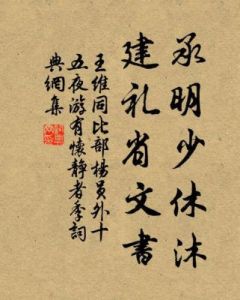 承明少休沐
建礼省文书
王维同比部杨员外十
五夜游有怀静者季詞
典網集